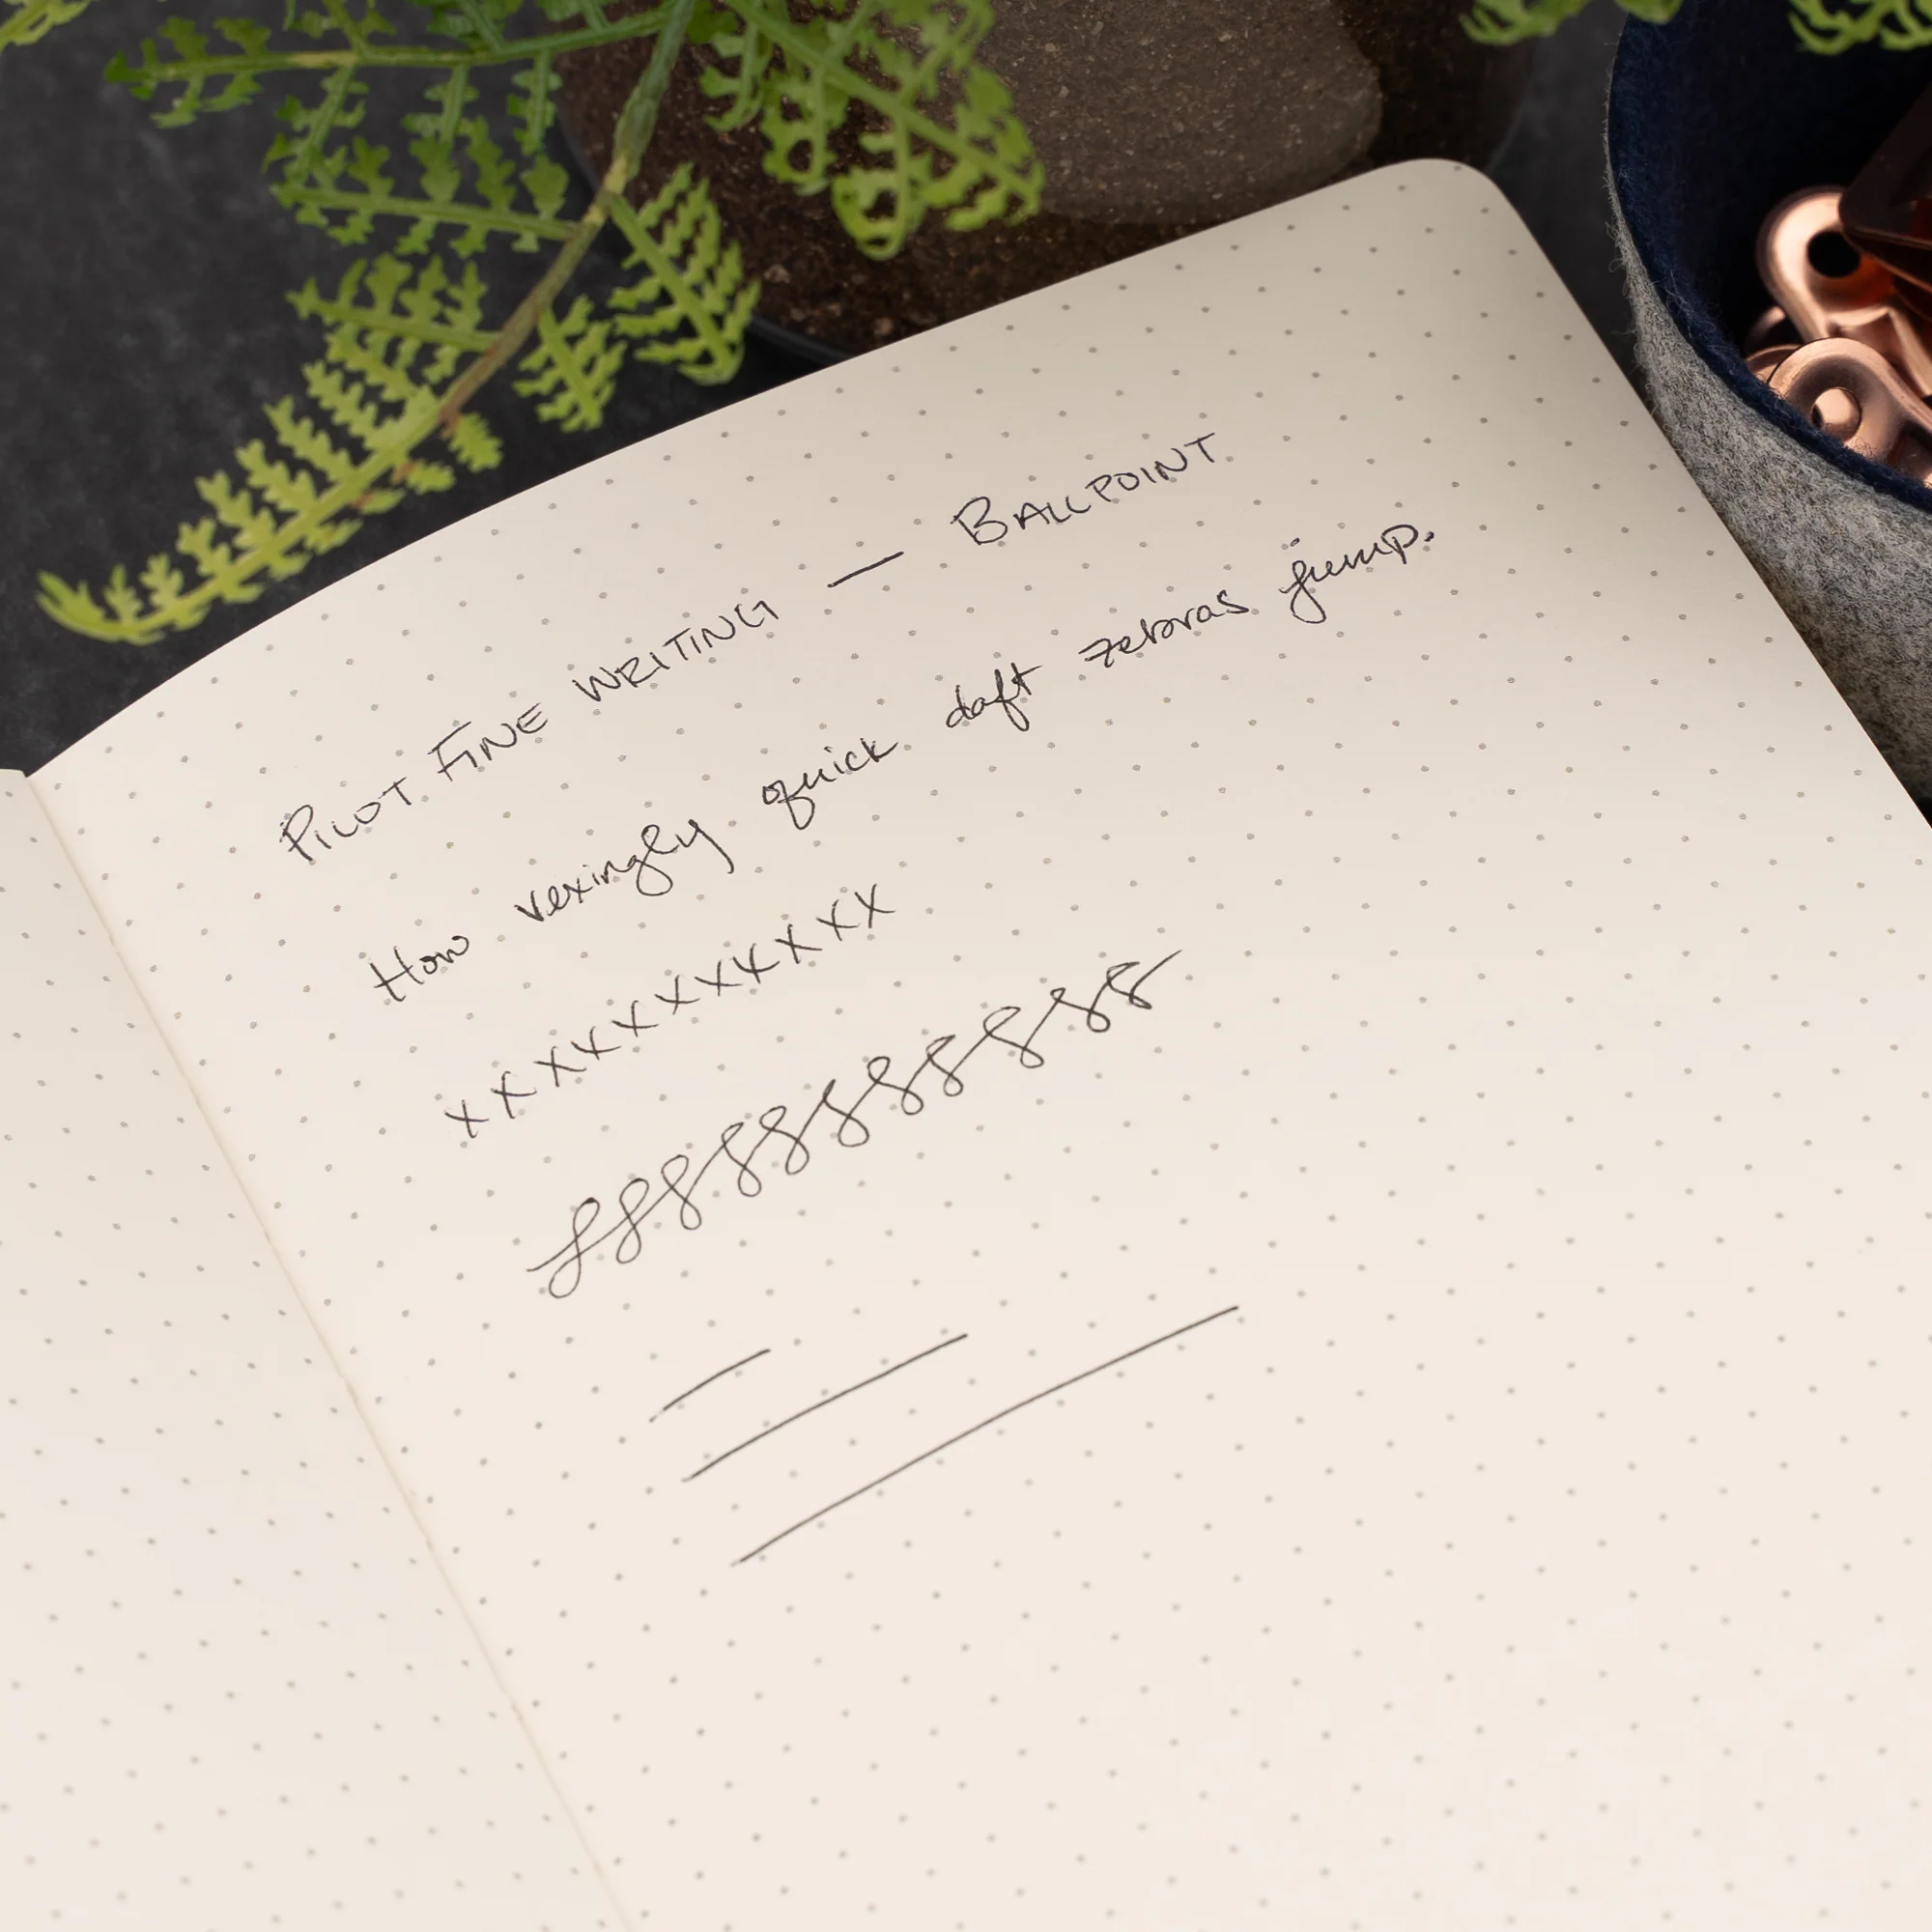 PILOT FINE WRITING — BALLPOINT
How vexingly quick daft zebras jump.
xxxxxxxxxx